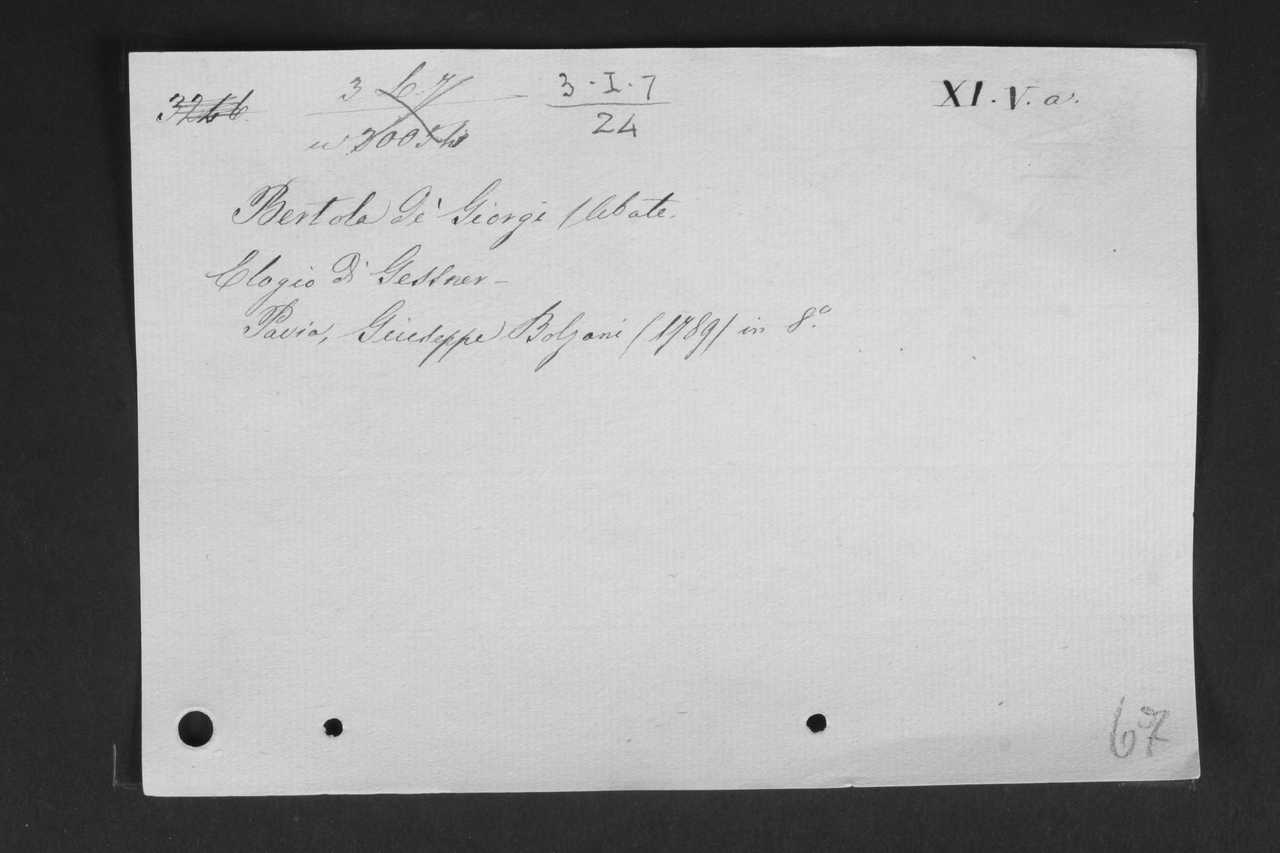 3 6.7 3.I.7 XI.V.a.
24
Bertola de' Giorgi (Abate.
Elogio di Gessner—
Pavia, Giuseppe Bolzani (1789) in 8.°
67